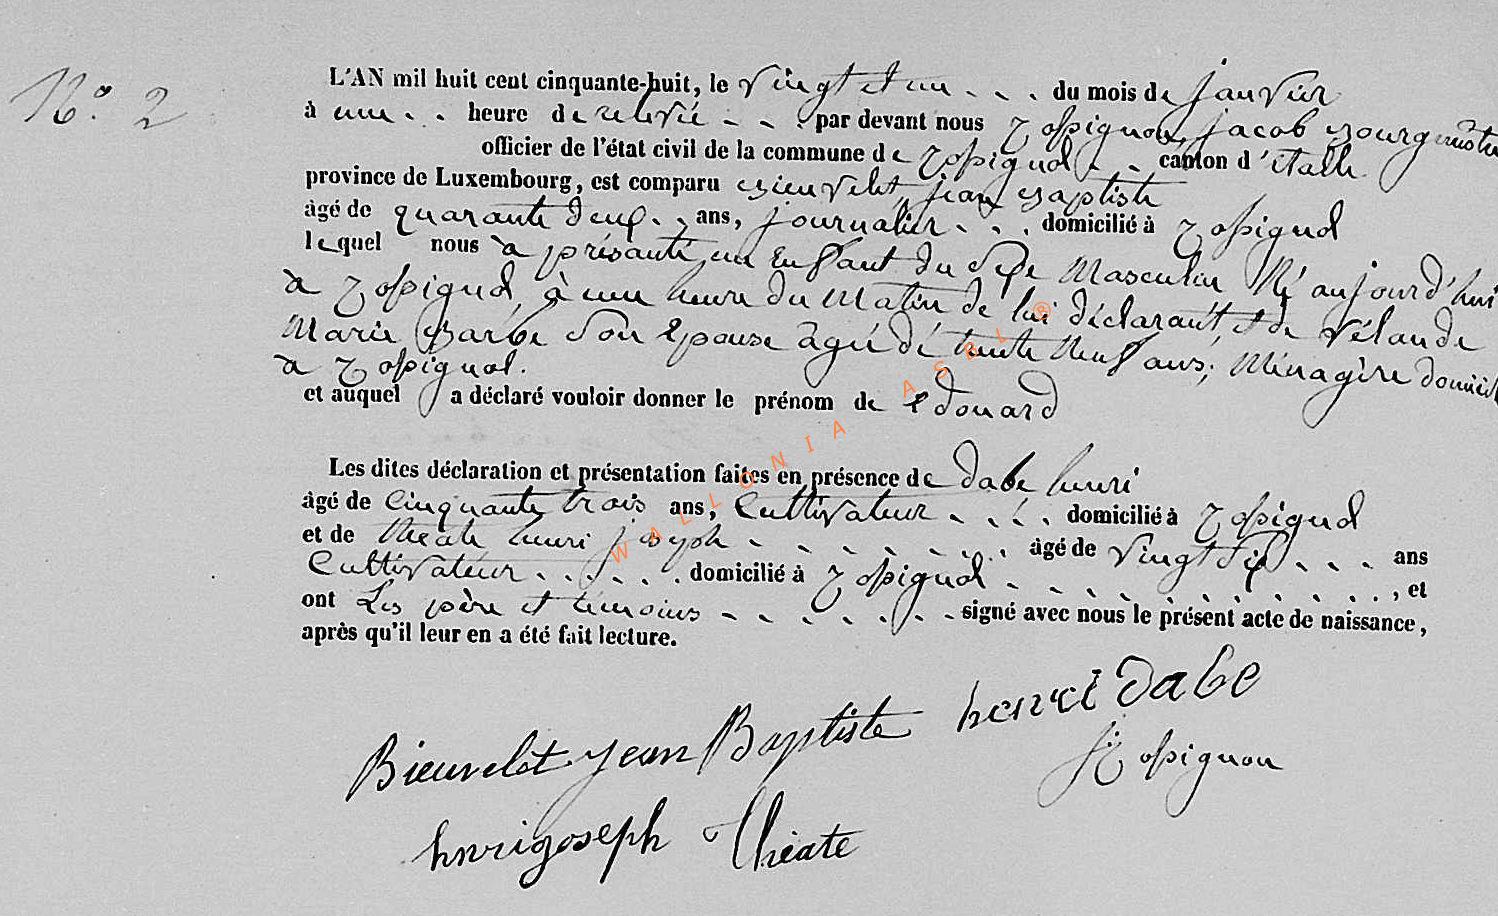 N° 2
L'AN mil huit cent cinquante-huit, le vingt et un . . . du mois de janvier
à une . . heure de relevée . . . par devant nous Rossignon, jacob Bourgmestre
officier de l'état civil de la commune de Rossignol . . canton d'Etalle
province de Luxembourg, est comparu Bieuvelet, jean Baptiste
âgé de quarante deux . . ans, journalier . . . domicilié à Rossignol
lequel nous à présanté un Enfant du sexe Masculin Né aujourd'hui
à Rossignol, à une heure du Matin de lui déclarant et de Vélande
Marie Barbe son Epouse âgée dé trente Neuf ans; Ménagère domicil
à Rossignol.
et auquel a déclaré vouloir donner le prénom de Edouard
Les dites déclaration et présentation faites en présence de Dabe henri
âgé de Cinquante trois ans, Cultivateur . . . . domicilié à Rossignol
et de théate henri joseph . . . . . . . . âgé de Vingt six . . . ans
Cultivateur . . . . . . domicilié à Rossignol . . . . . . . . . . , et
ont Les père et témoins . . . . . . . signé avec nous le présent acte de naissance,
après qu'il leur en a été fait lecture.
Bieuvelet jean Baptiste henri Dabe
J Rossignon
henri joseph Théate
WALLONIA ASBL ®